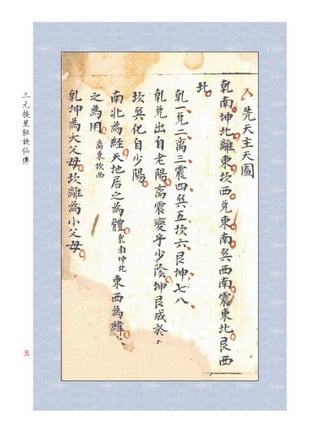 先天主天圖
乾南坤北離東坎西兌東南巽西南震東北艮西
北
乾一兌二離三震四巽五坎六艮坤七八
乾兌出自老陽離震變乎少陰坤艮成於
坎巽化自少陽
南北為經天地居之為體乾南坤北東西為緯
之為用離東坎西
乾坤為大父母坎離為小父母
三元挨星秘訣仙傳
五